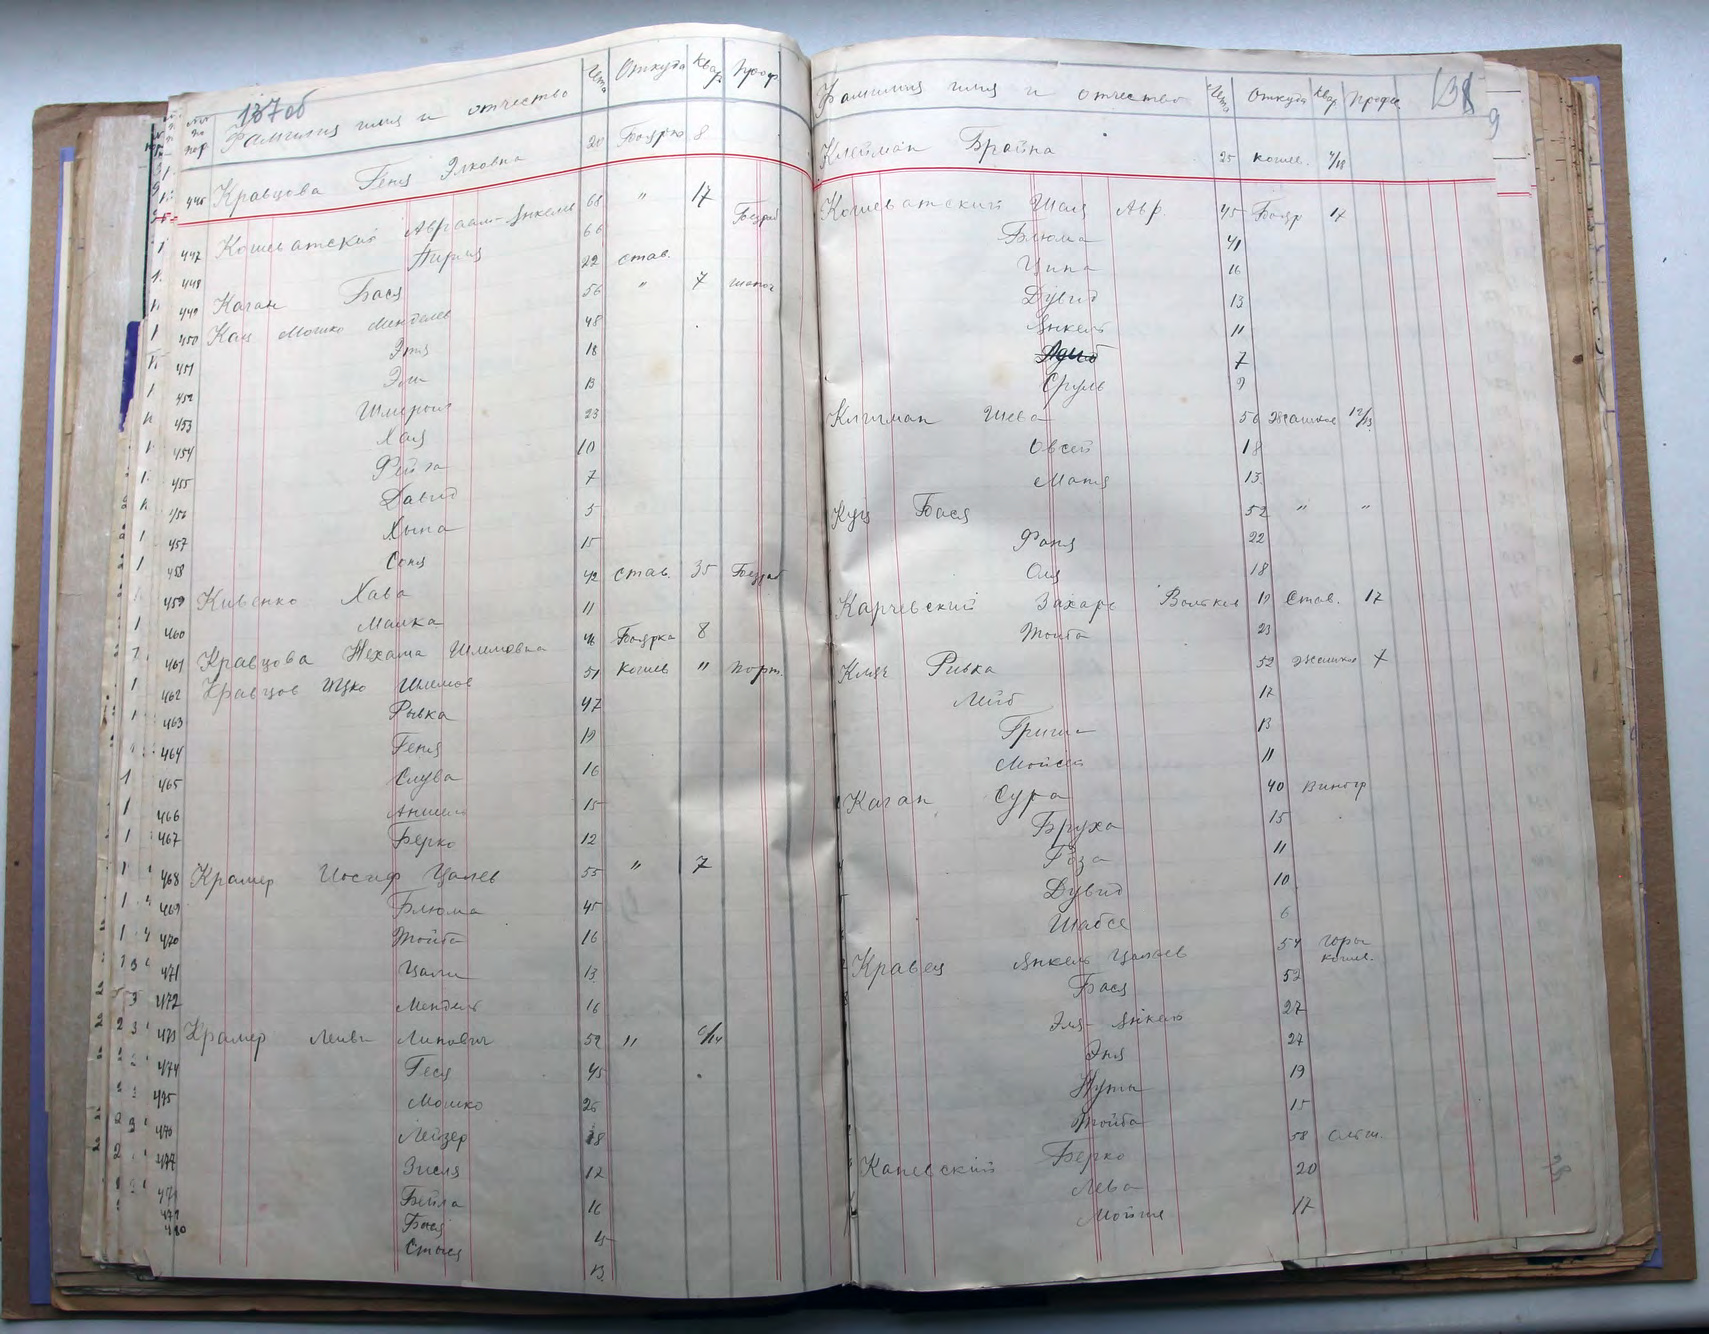 137об
№№ по пор Фамилия имя и отчество Лета Откуда Квар Проф
446 Кравцова Геня Элковна 20 Боярка 8
447 Кошеватский Авраам-Янкель 68 " 17 Безраб
448 Пирля 66
449 Каган Бася 22 став.
450 Кац Мошко Менделев 56 " 7 шапоч
451 Этя 48
452 18
453 13
454 Хая 23
455 Фейга 10
Давид 7
457 Хына 5
458 Соня 15
459 Кивенко Хава 42 став. 35 Безраб
460 Малка 11
461 Кравцова Нехама Шлиомовна Боярка 8
462 Кравцов Ицко Шлиомов 51 кошев " порт.
463 Рывка 47
464 Геня 19
465 Слува 16
466 Аншель 15
467 Берко 12
468 Крамер Иосиф Цалев 55 " 7
469 Блюма 45
470 Тойба 16
471 Цали 13
472 Мендель 16
473 Крамер Лейви Липович 52 " 6/14
474 Геся 45
475 Мошко 26
476 Лейзер 18
477 Зисля 12
Бейла 16
479 Бася 15
480 13
Фамилия имя и отчество Лета Откуда Квар Профес 138
9
Клейман Брайна 25 кошев. 7/18
Кошеватский Шая Авр. 45 Бояр 17
Блюма 41
Ципа 16
Дувид 13
Янкель 11
7
Сруль 9
Клигман Шева 56 Жашков 12/13
Овсей 18
Матя 13
Куц Бася 52 " "
Фаня 22
Оля 18
Карчевский Захарь Волькев 19 Став. 17
Тойба 23
Кляч Ривка 52 Жашков 7
Лейб 17
Гриша 13
Мойсей 11
Каган Сура 40 Виногр
Бруха 15
Роза 11
Дувид 10
Шабся 6
Кравец Янкель Цалев 54 горы кошев.
Бася 52
Эля-Янкель 27
Эня 27
Нута 19
Тойба 15
Каневский Берко 58 Ольш.
Лева 20
Мойше 17